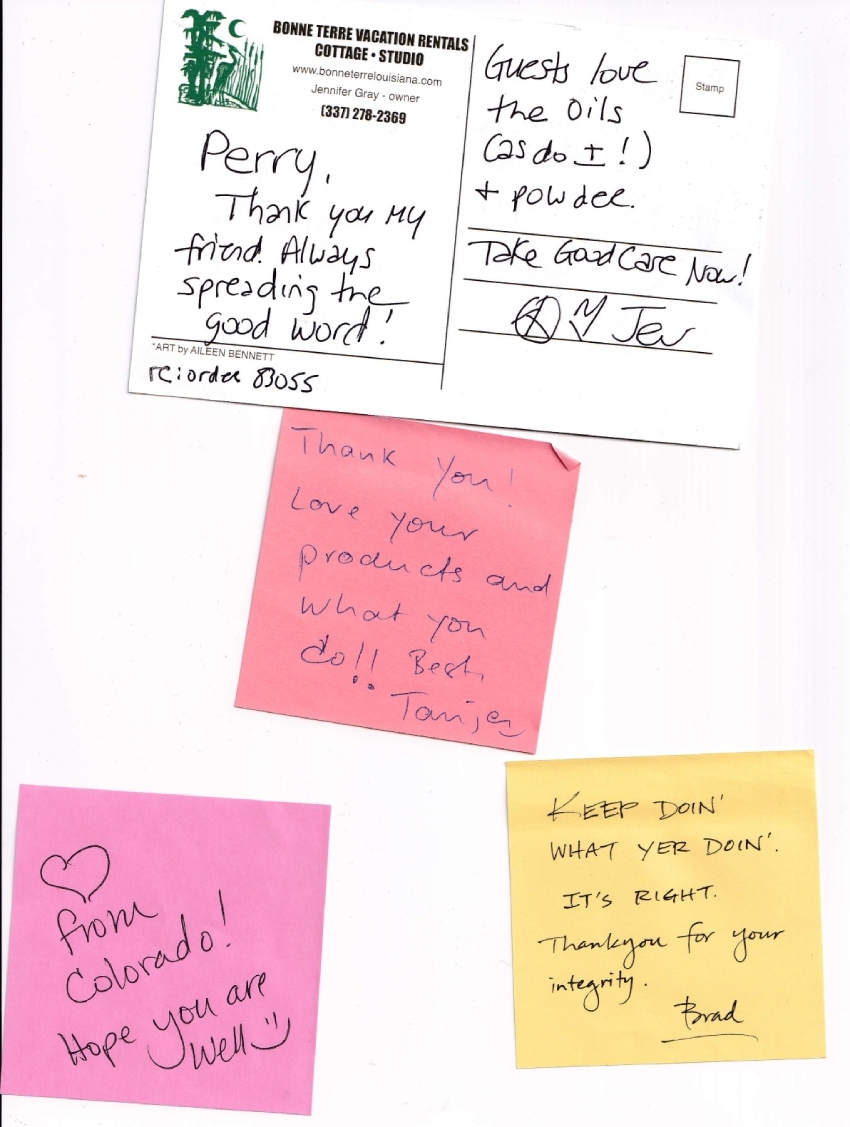 BONNE TERRE VACATION RENTALS
COTTAGE • STUDIO
www.bonneterrelouisiana.com
Jennifer Gray - owner
(337) 278-2369
Perry,
Thank you my
friend. Always
spreading the
good word!
*ART by AILEEN BENNETT
re: order 83055
Stamp
Guests love
the Oils
(as do I!)
+ powder.
Take Good Care Now!
Jen
Thank you!
Love your
products and
what you
do!! Best,
KEEP DOIN'
WHAT YER DOIN'.
IT'S RIGHT.
Thankyou for your
integrity.
Brad
from
Colorado!
Hope you are
well